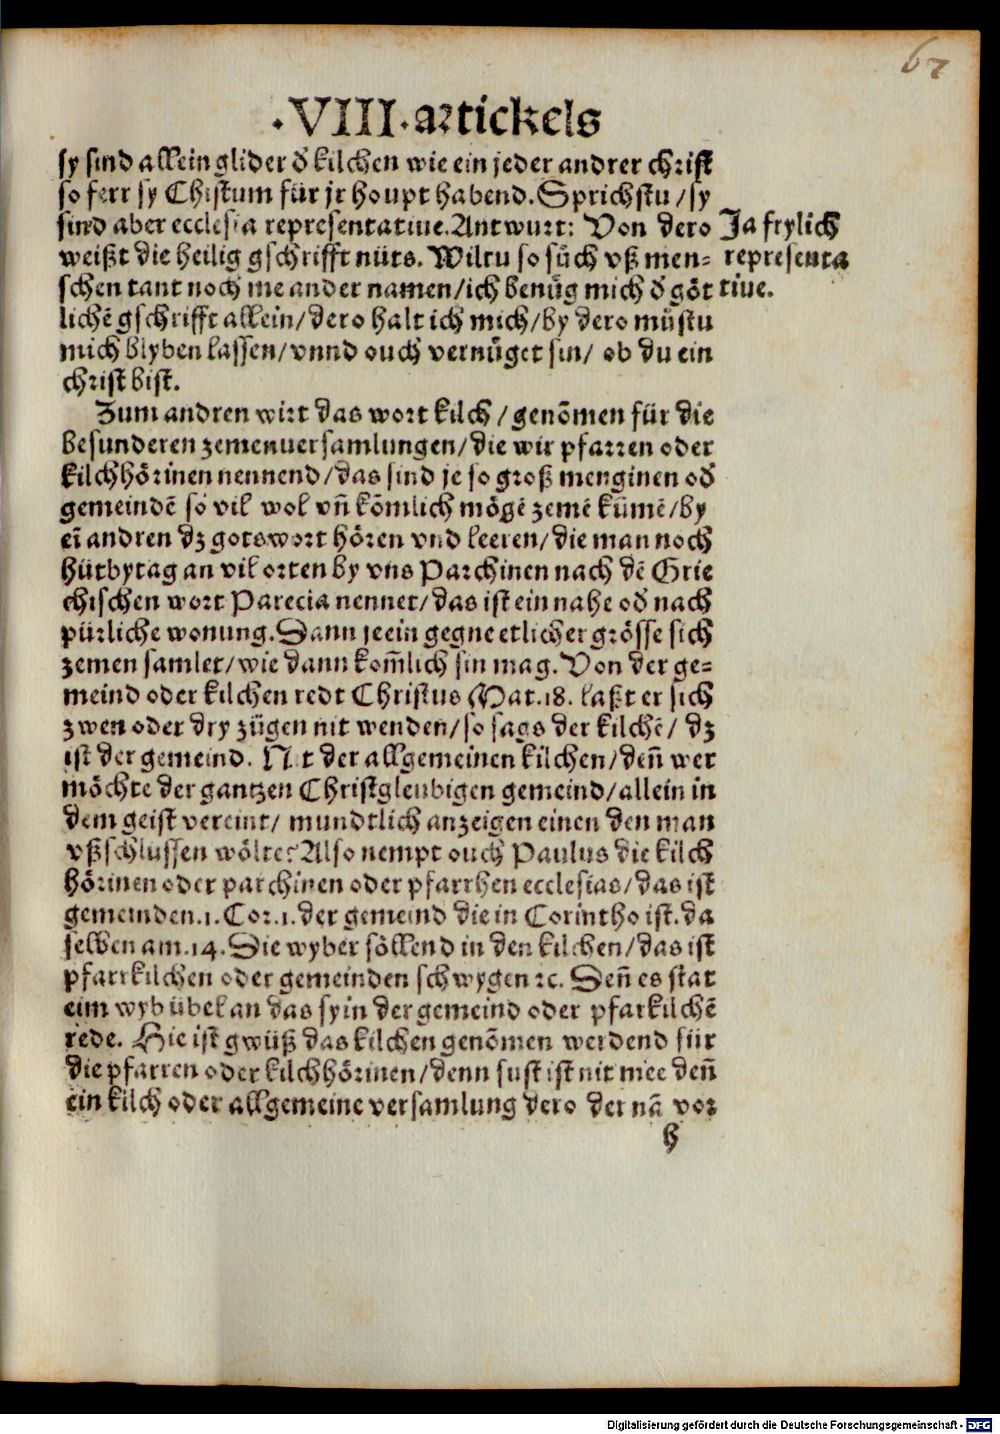 67
·VIII·artickels
sy sind allein glider ď kilchen wie ein jeder andrer christ
so ferr sy Christum für jr houpt habend. Sprichstu / sy
sind aber ecclesia representatiue. Antwurt: Von dero
weißt die heilig gschrifft nüts. Wiltu so sůch vß men-
schen tant noch me ander namen / ich benůg mich ď göt
lichē gschrifft allein / dero halt ich mich / by dero můstu
mich blyben lassen / vnnd ouch vernůget sin / ob du ein
christ bist.
Ja frylich
representa
tiue.
Zum andren wirt das wort kilch / genōmen für die
besunderen zemenuersamlungen / die wir pfarren oder
kilchhörinen nennend / das sind je so groß menginen oď
gemeindē so vil wol vn̄ kōmlich mögē zemē kūmē / by
eī andren dz gotswort hören vnd leeren / die man noch
hütbytag an vil orten by vns Parchinen nach dē Grie
chischen wort Parecia nennet / das ist ein nahe oď nach
pürliche wonung. Dann je ein gegne etlicher grösse sich
zemen samlet / wie dann kom̄lich sin mag. Von der ge-
meind oder kilchen redt Christus Mat. 18. laßt er sich
zwen oder dry zügen nit wenden / so sags der kilchē / dz
ist der gemeind. Nit der allgemeinen kilchen / den̄ wer
möchte der gantzen Christgleubigen gemeind / allein in
dem geist vereint / mundtlich anzeigen einen den man
vßschlussen wölte? Also nempt ouch Paulus die kilch
hörinen oder parchinen oder pfarrhen ecclesias / das ist
gemeinden. 1. Cor. 1. der gemeind die in Corintho ist. da
selben am. 14. Die wyber söllend in den kilchen / das ist
pfarrkilchen oder gemeinden schwygen ꝛc. Den̄ es stat
eim wyb übel an das sy in der gemeind oder pfarkilchē
rede. Hie ist gwüß das kilchen genōmen werdend für
die pfarren oder kilchhörinen / denn sust ist nit mee den̄
ein kilch oder allgemeine versamlung dero der nā vor
h
Digitalisierung gefördert durch die Deutsche Forschungsgemeinschaft - DFG